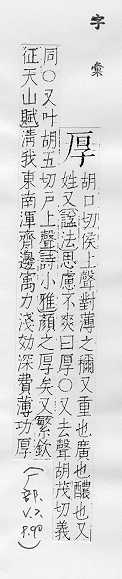 字彙
厚 胡口切侯上聲對薄之稱又重也廣也醲也又
姓又諡法思慮不爽曰厚○又去聲胡茂切義
同○又叶胡五切戸上聲詩小雅顔之厚矣又繁欽
征天山賦淸我東南渾齊邊寓力淺効深費薄功厚
(厂部. V.2. P.90)